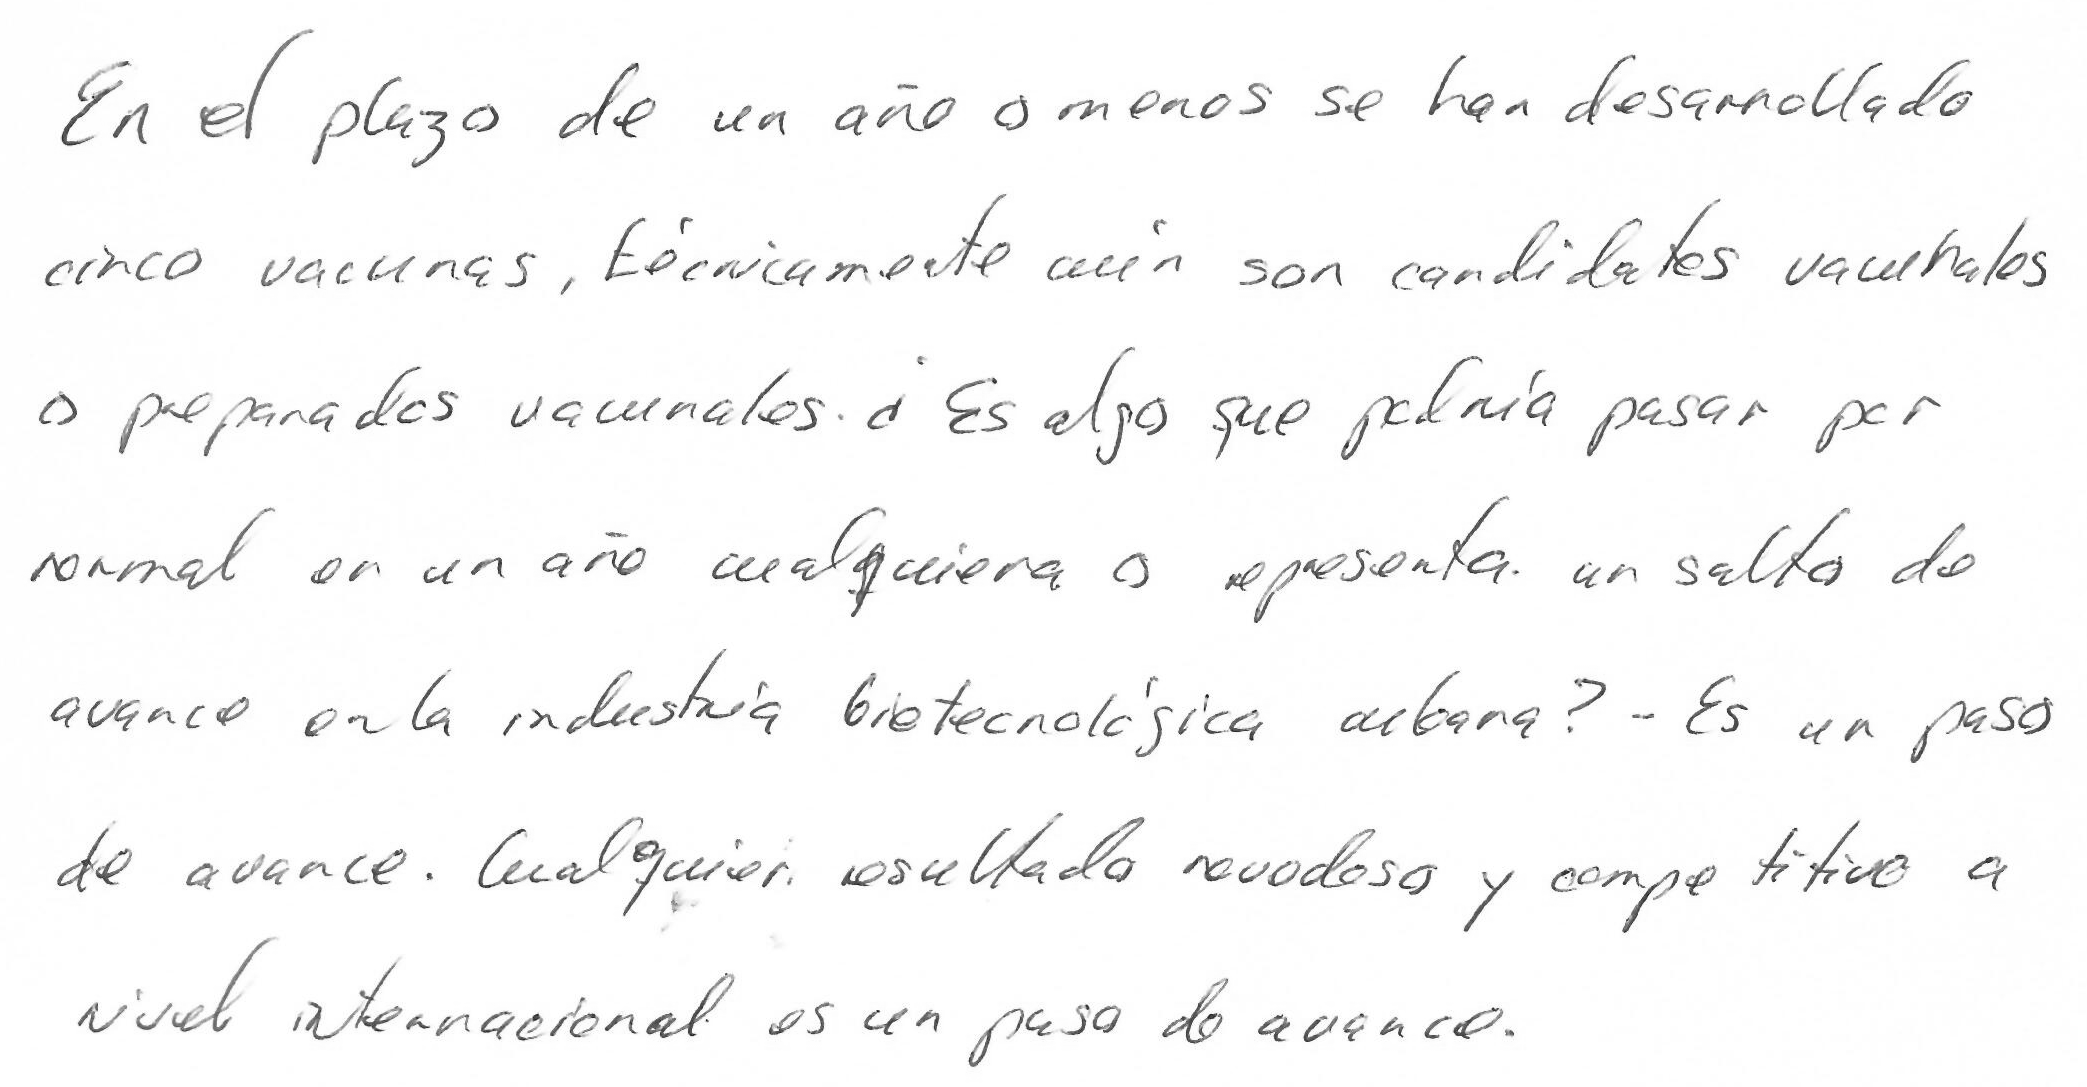 En el plazo de un año o menos se han desarrollado
cinco vacunas, técnicamente aún son candidatos vacunales
o preparados vacunales. ¿Es algo que podría pasar por
normal en un año cualquiera o representa un salto de
avance en la industria biotecnológica cubana? - Es un paso
de avance. Cualquier resultado novedoso y competitivo a
nivel internacional es un paso de avance.